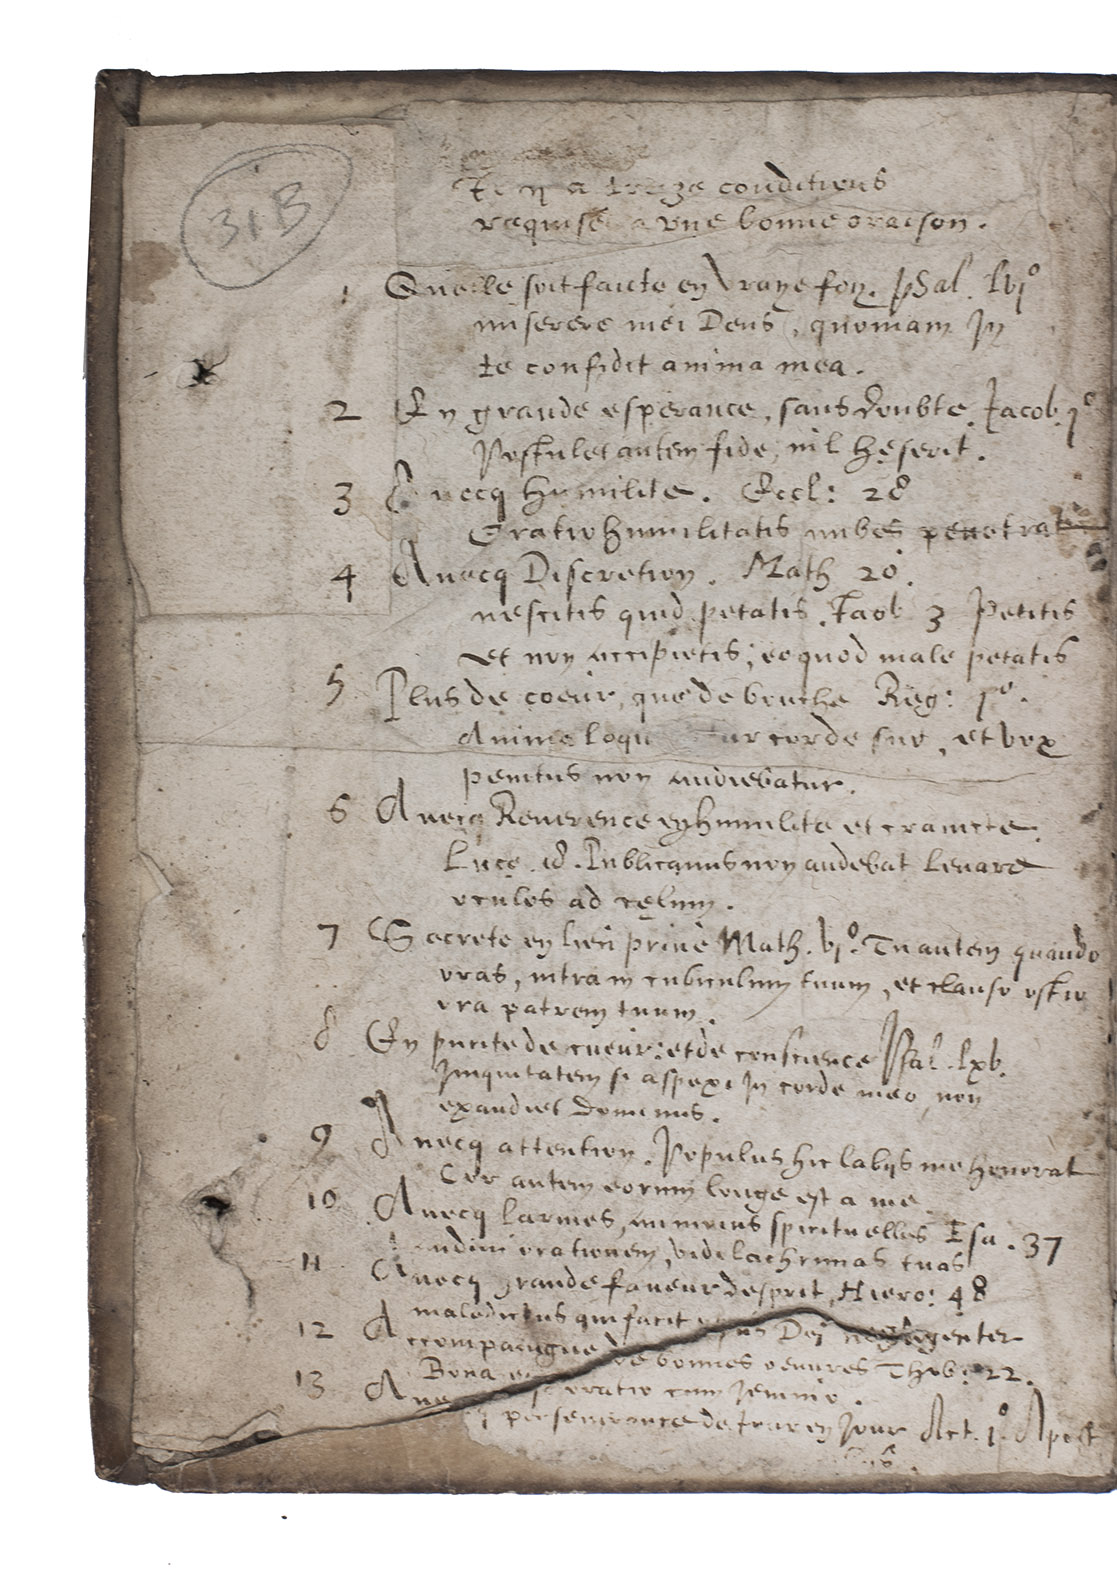 31B
Il y a treize conditions
requise a une bonne oraison.
1 Quelle soit faicte en vraye foy. psal. lvi°
miserere mei Deus, quoniam in
te confidit anima mea.
2 En grande esperance, sans doubte Jacob. i°
Postulet autem fide, nil hęserit.
3 Avecq humilite. Eccl: 28
Oratio humilitatis nubes penetrat
4 Avecq Discretion. Math 20.
nescitis quid petatis. Jaob 3 Petitis
et non accipietis; eo quod male petatis
5 Plus de coeur, que de bouche Reg: i°.
Anima loqu ur corde suo, et vox
penitus non audiebatur.
6 Avecq Reverence en humilite et craincte.
Lucę. 18. Publicanus non audebat levare
oculos ad cęlum.
7 Secrete en lieu prive Math. vi°. Tu autem quando
oras, intra in cubiculum tuum, et clauso ostio
ora patrem tuum.
8 En purite de cueur: et de conscience Psal. lxv.
Iniquitatem si aspexi in corde meo, non
exaudiet dominus.
9 Avecq attention. Populus hic labijs me honorat
Cor autem eorum longe est a me
10 Avecq larmes, aumoins spirituelles Esa. 37
audivi orationem, vidi lachrimas tuas
11 Avecq grande faveur desprit, Hiero: 48
maledictus qui facit opus Dei negligenter
12 Accompaignee de bonnes oeuvres Thob: 22.
Bona est oratio cum jeiunio.
13 Avecq perseverance de jour en jour Act. i° Apost